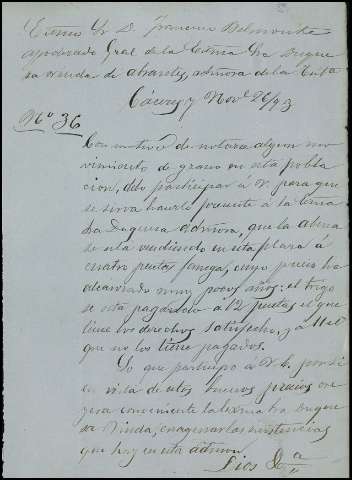 Excmo Sr D. Francisco Belmonte
apoderado Gral de la Excma Sra Duque
sa viuda de Abrantes, admora de la Testa
Cáceres y Nove 26/93
Nº 36
Con motivo de notarse algun mo
vimiento de granos en esta pobla
cion, debo participar á V. para que
se sirva hacerlo presente á la Excma
Sra Duquesa Admora, que la abena
se esta vendiendo en esta plaza á
cuatro pesetas fanega, cuyo precio ha
alcanzado muy pocos años; el trigo
se está pagando á 12 pesetas el que
tiene los derechos satisfecho, y á
que no los tiene pagados.
Lo que participo á V. E. por si
en vista de estos buenos precios cre
yera conveniente la Excma Sra Duque
sa Viuda, enagenar las existencias
que hay en esta admon.
Dios &a